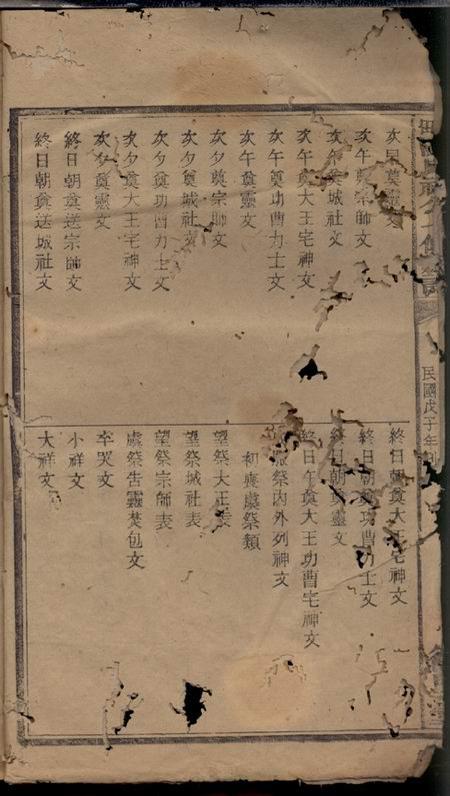 民國戊子年刊
次早奠靈文
次午奠宗師文
次午奠城社文
次午奠大王宅神文
次午奠功曹力士文
次午奠靈文
次夕奠宗師文
次夕奠城社文
次夕奠功曹力士文
次夕奠大王宅神文
次夕奠靈文
終日朝奠送宗師文
終日朝奠送城社文
終日朝奠大王宅神文
終日朝奠功曹力士文
終日朝奠靈文
終日午奠大王功曹宅神文
祭內外列神文
初喪虞祭類
望祭大王表
望祭城社表
望祭宗師表
虞祭告靈焚包文
卒哭文
小祥文
大祥文